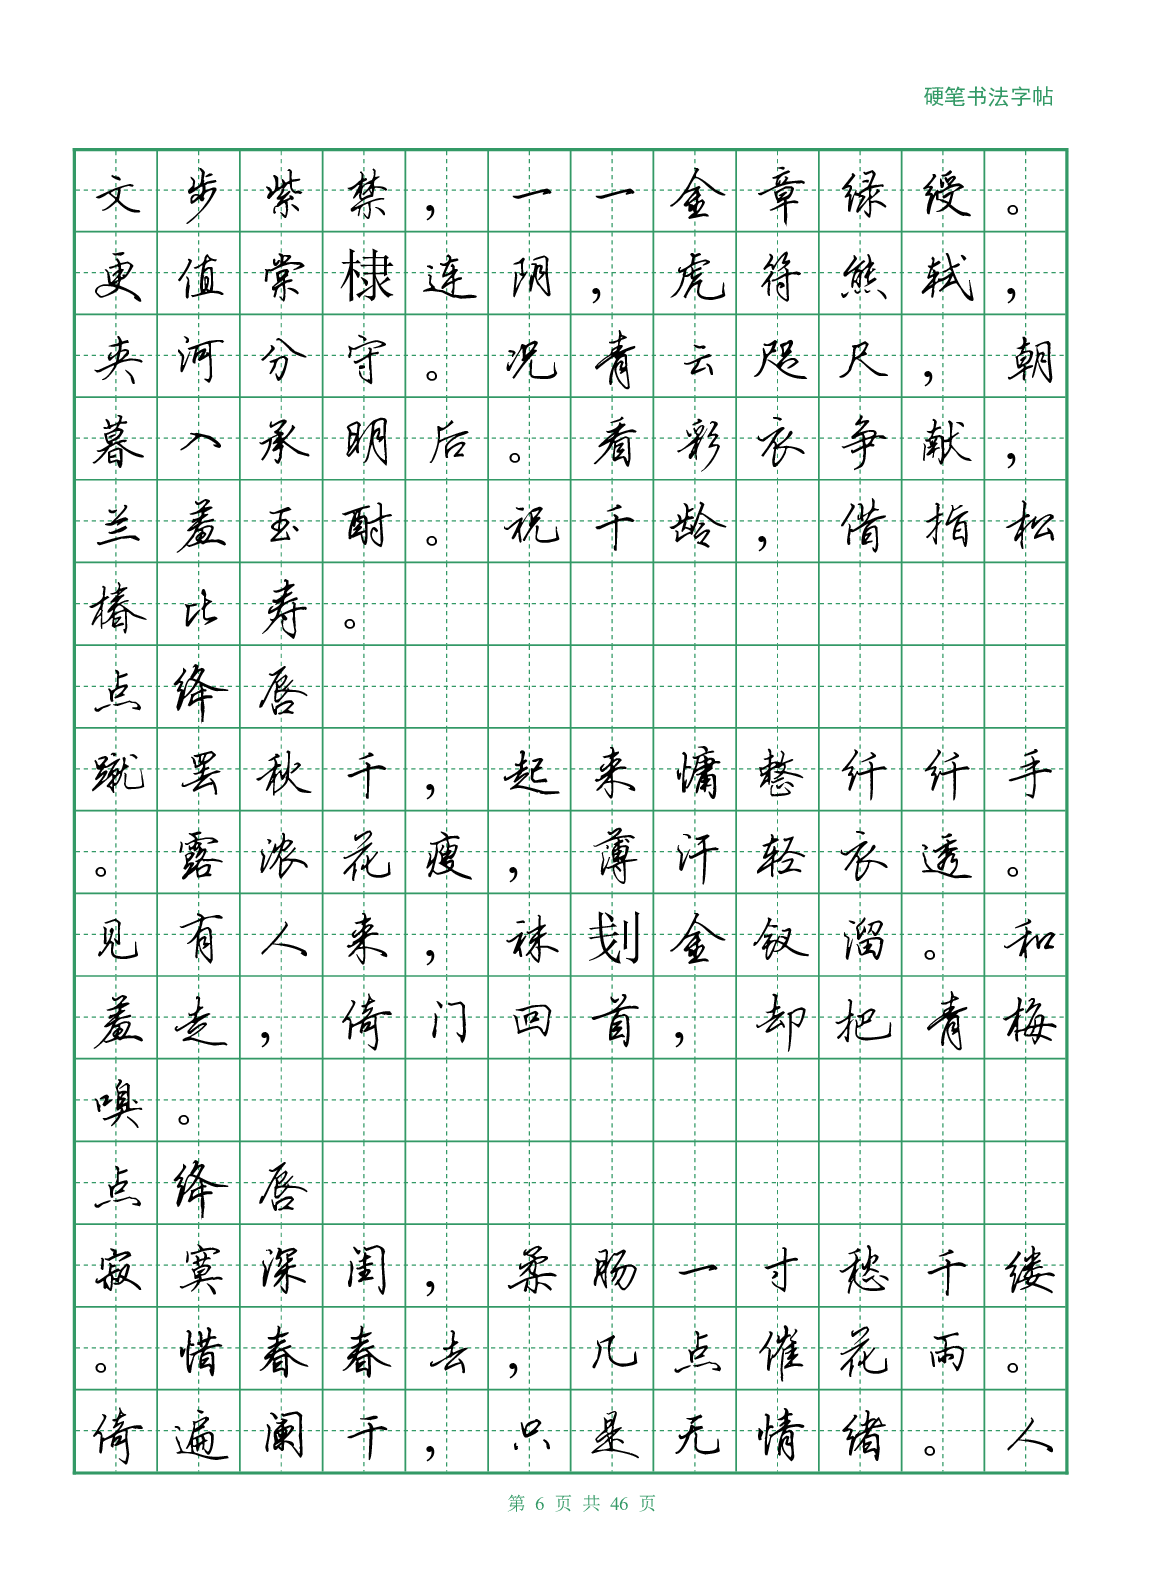 硬笔书法字帖
文步紫禁，一一金章绿绶。
更值棠棣连阴，虎符熊轼，
夹河分守。况青云咫尺，朝
暮入承明后。看彩衣争献，
兰羞玉酎。祝千龄，借指松
椿比寿。
点绛唇
蹴罢秋千，起来慵整纤纤手
。露浓花瘦，薄汗轻衣透。
见有人来，袜刬金钗溜。和
羞走，倚门回首，却把青梅
嗅。
点绛唇
寂寞深闺，柔肠一寸愁千缕
。惜春春去，几点催花雨。
倚遍阑干，只是无情绪。人
第 6 页 共 46 页